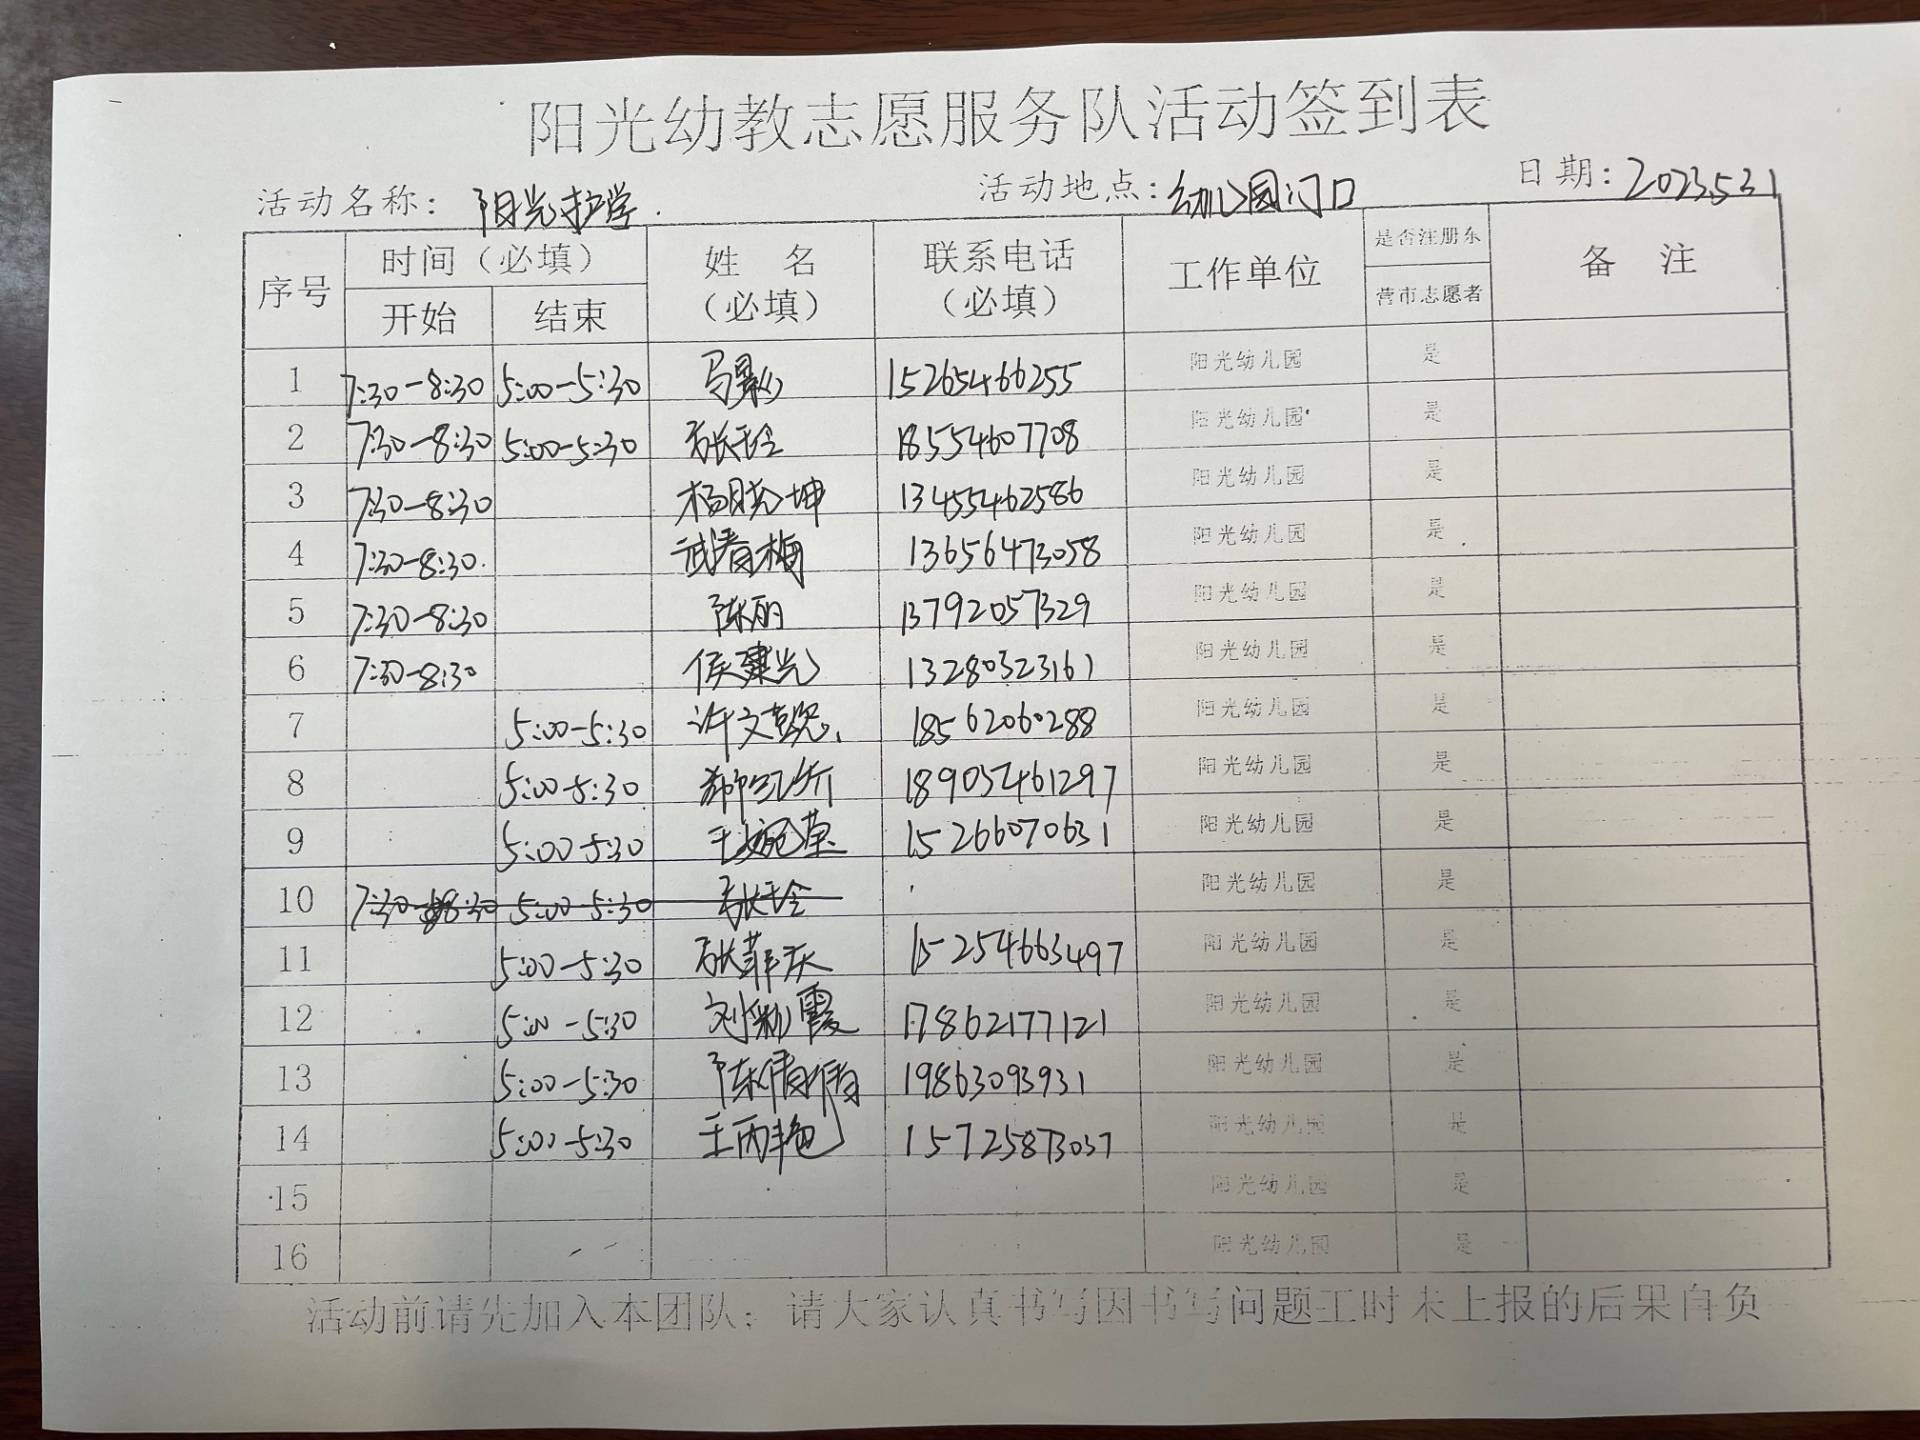 阳光幼教志愿服务队活动签到表
活动名称: 阳光护学. 活动地点: 幼儿园门口 日期: 2023.5.31
序号 时间（必填） 姓 名（必填） 联系电话（必填） 工作单位 是否注册东营市志愿者 备 注
开始 结束
1 7:30-8:30 5:00-5:30 15265466255 阳光幼儿园 是
2 7:30-8:30 5:00-5:30 张玉玲 18554607708 阳光幼儿园 是
3 7:30-8:30 杨晓坤 13455462586 阳光幼儿园 是
4 7:30-8:30. 武春梅 13656473058 阳光幼儿园 是
5 7:30-8:30 陈丽 13792057329 阳光幼儿园 是
6 7:30-8:30 侯建光 13280323161 阳光幼儿园 是
7 5:00-5:30 许文 18562060288 阳光幼儿园 是
8 5:00-5:30 18905461297 阳光幼儿园 是
9 5:00-5:30 王婉莹 15266070631 阳光幼儿园 是
10 7:30-8:30 5:00-5:30 张玉玲 阳光幼儿园 是
11 5:00-5:30 张菲庆 15254663497 阳光幼儿园 是
12 5:00-5:30 刘彩霞 17862177121 阳光幼儿园 是
13 5:00-5:30 陈倩倩 19863093931 阳光幼儿园 是
14 5:00-5:30 王丙艳 15725873037 阳光幼儿园 是
15 阳光幼儿园 是
16 阳光幼儿园 是
活动前请先加入本团队；请大家认真书写因书写问题工时未上报的后果自负